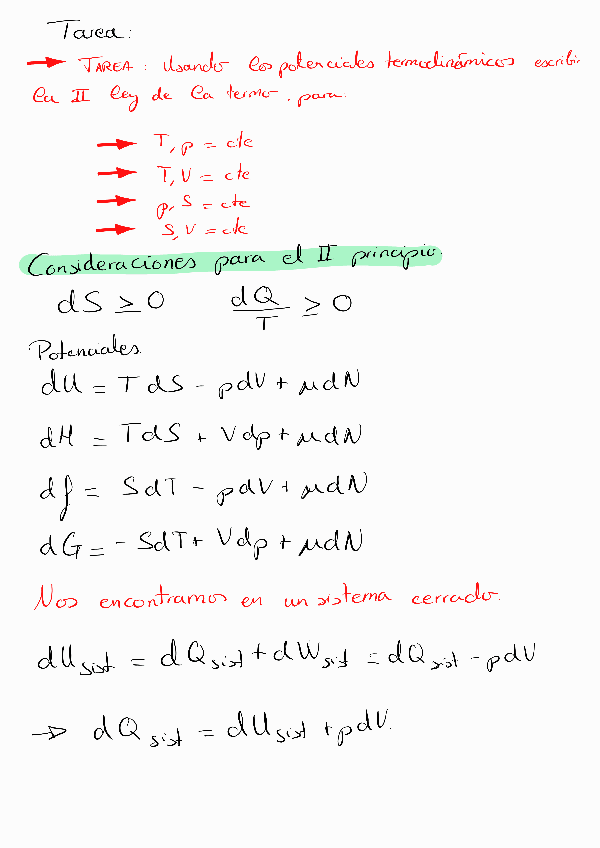 Tarea:
→ TAREA: Usando los potenciales termodinámicos escribir
la II ley de la termo. para:
→ T, p = cte
→ T, V = cte
→ p, S = cte
→ S, V = cte
Consideraciones para el II principio.
dS ≥ 0 dQ/T ≥ 0
Potenciales.
dU = TdS - pdV + μdN
dH = TdS + Vdp + μdN
df = SdT - pdV + μdN
dG = - SdT + Vdp + μdN
Nos encontramos en un sistema cerrado.
dU sist = dQ sist + dW sist = dQ sist - pdV
→ dQ sist = dU sist + pdV.